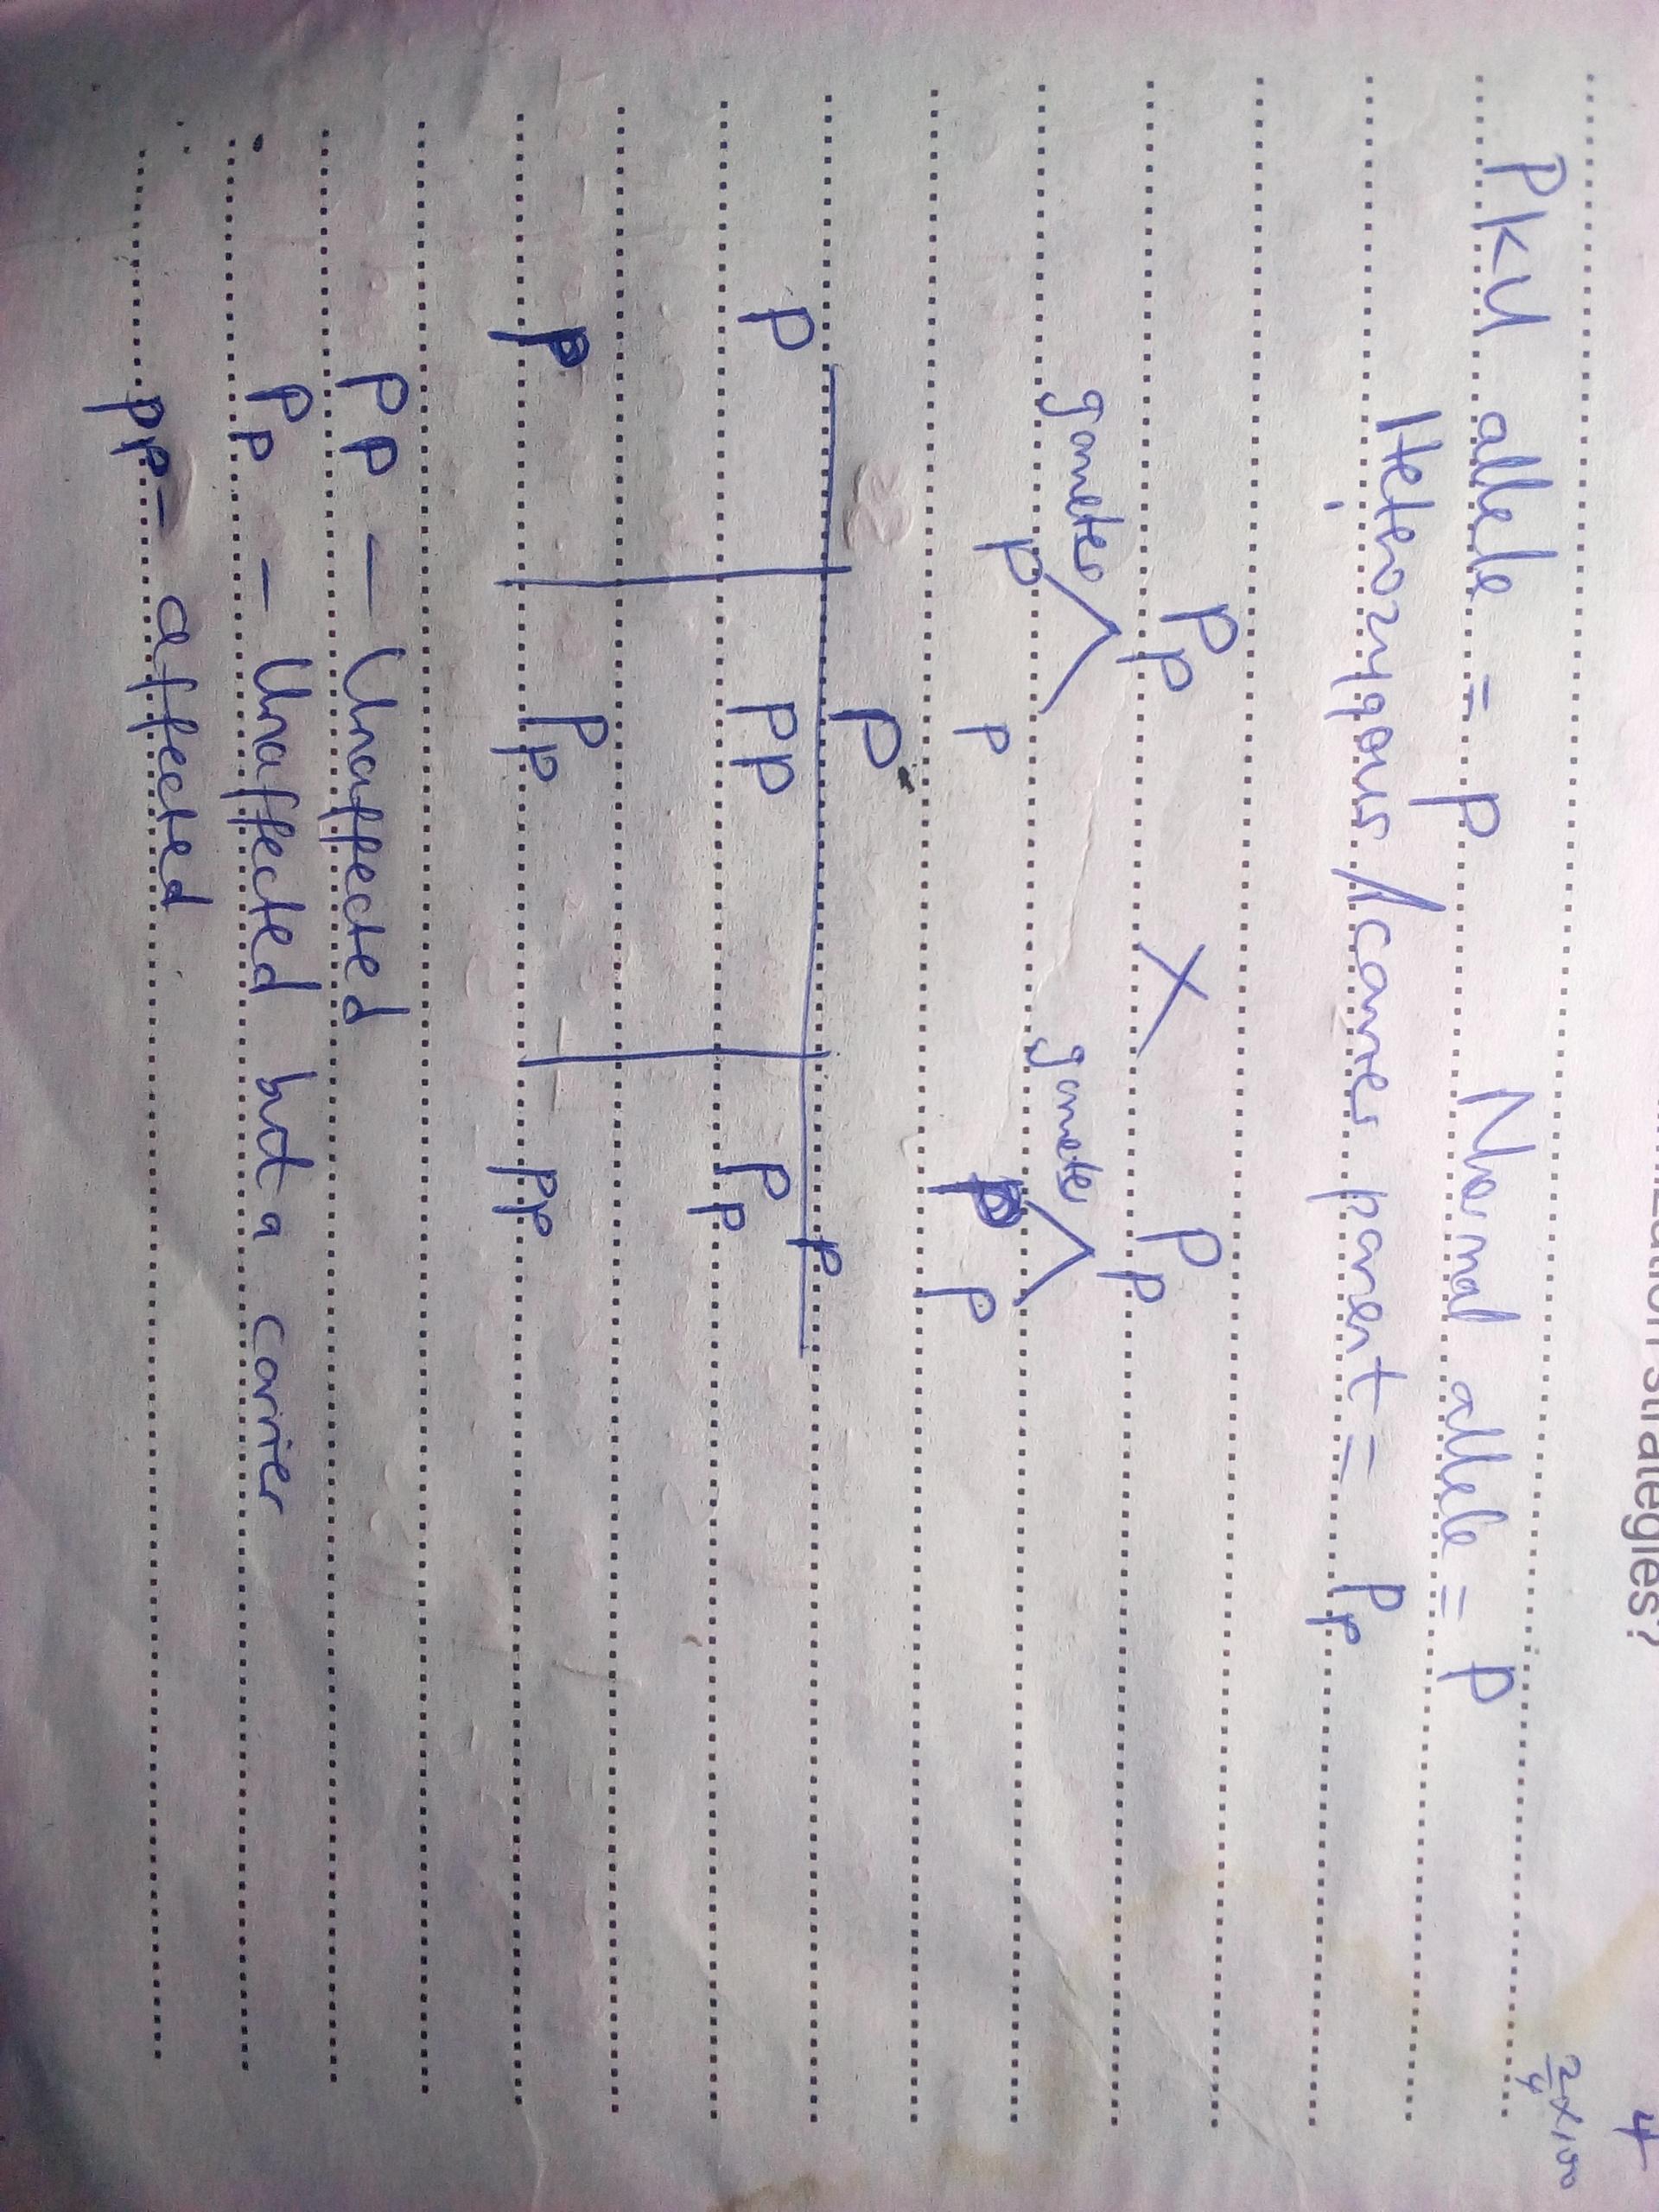 ization strategies?
4
2/4 x 100
PKU allele = p Normal allele = P
Heterozygous/carrier parent = Pp
Pp X Pp
gametes gametes
P p p P
P p
P PP Pp
p Pp pp
PP — Unaffected
Pp — Unaffected but a carrier
pp - affected